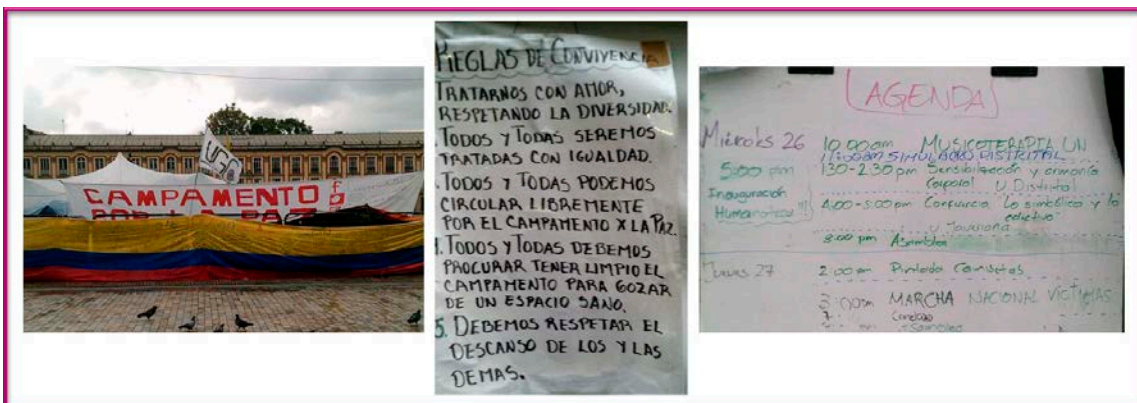 USO
CAMPAMENTO
POR LA PAZ
REGLAS DE CONVIVENCIA
TRATARNOS CON AMOR,
RESPETANDO LA DIVERSIDAD.
TODOS Y TODAS SEREMOS
TRATADAS CON IGUALDAD.
TODOS Y TODAS PODEMOS
CIRCULAR LIBREMENTE
POR EL CAMPAMENTO X LA PAZ.
TODOS Y TODAS DEBEMOS
PROCURAR TENER LIMPIO EL
CAMPAMENTO PARA GOZAR
DE UN ESPACIO SANO.
5. DEBEMOS RESPETAR EL
DESCANSO DE LOS Y LAS
DEMAS.
AGENDA
Miércoles 26
5:00 pm
Inauguración
10:00am MUSICOTERAPIA UN
11:00am SIMULACRO DISTRITAL
1:30-2:30 pm Sensibilización y armonía
Corporal U. Distrital
4:00-5:00 pm "Lo simbólico y lo
colectivo"
U. Javeriana
8:00 pm Asamblea
Jueves 27
2:00 pm Pintado Camisetas
3:00pm MARCHA NACIONAL VÍCTIMAS
7